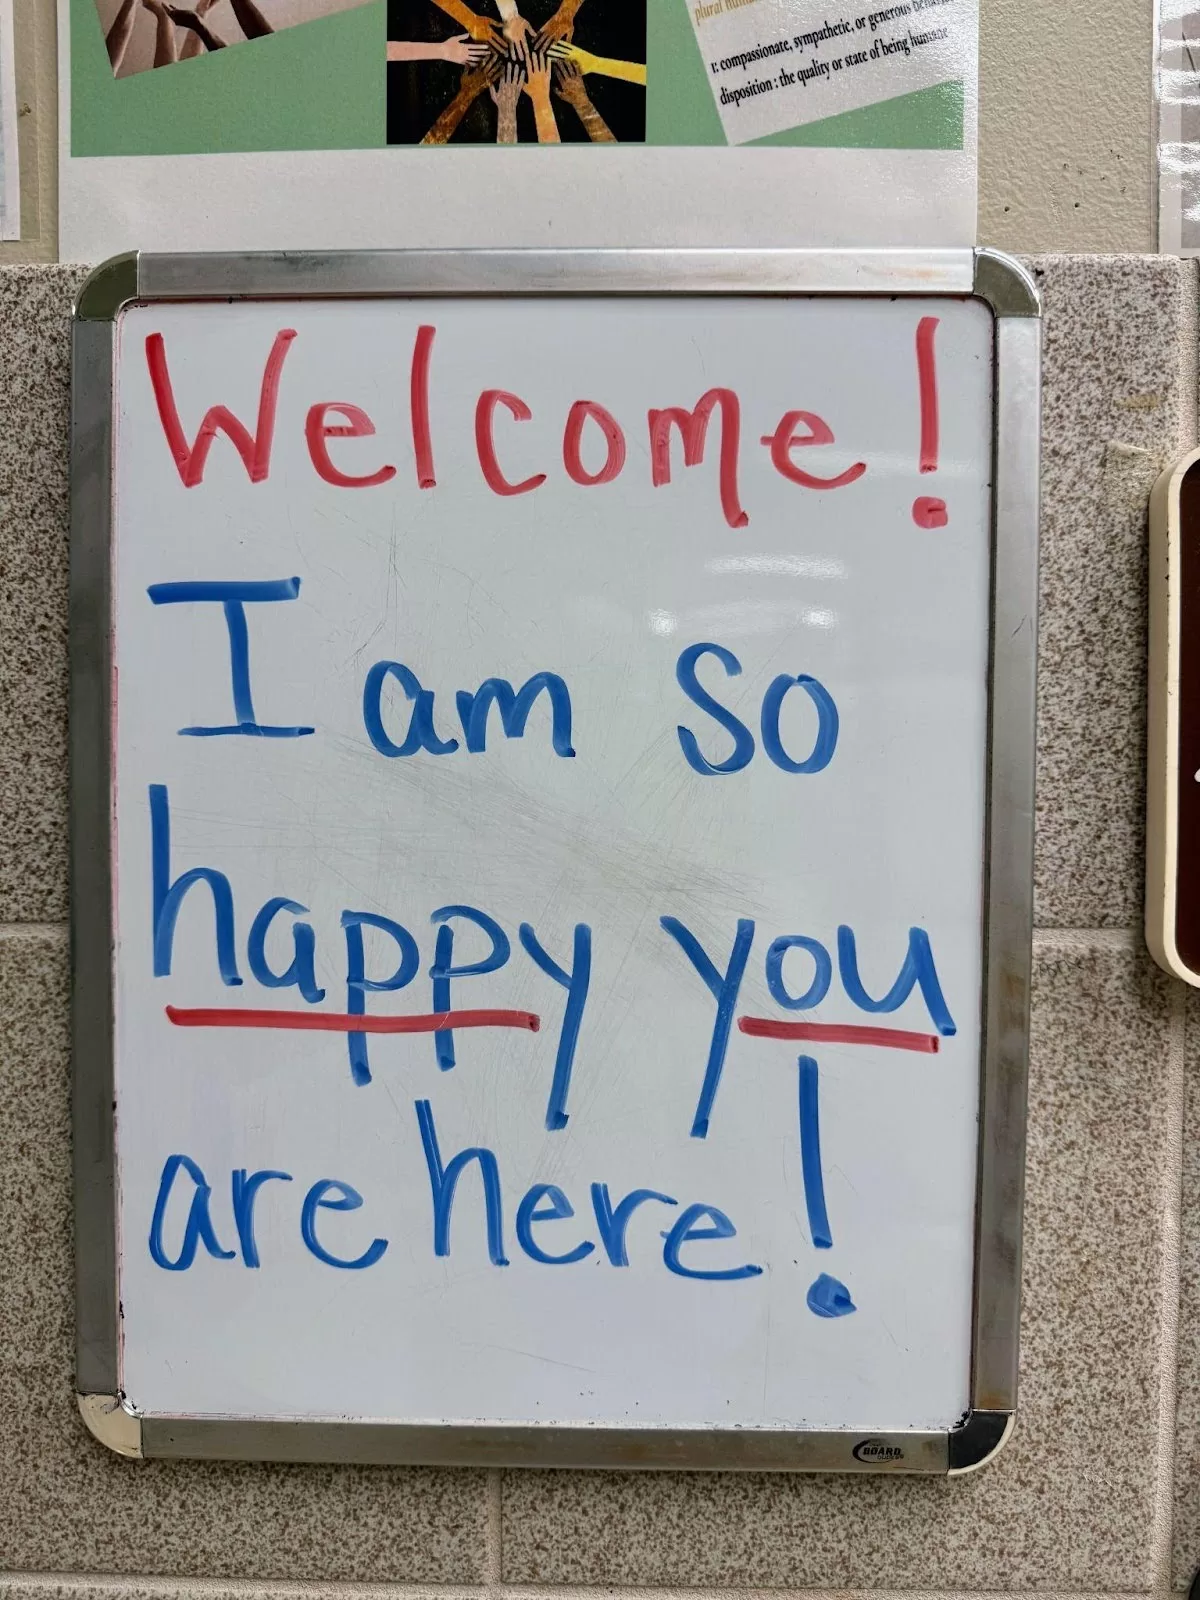 plural
r: compassionate, sympathetic, or generous
disposition : the quality or state of being humane
Welcome!
I am so
happy you
are here!
BOARD